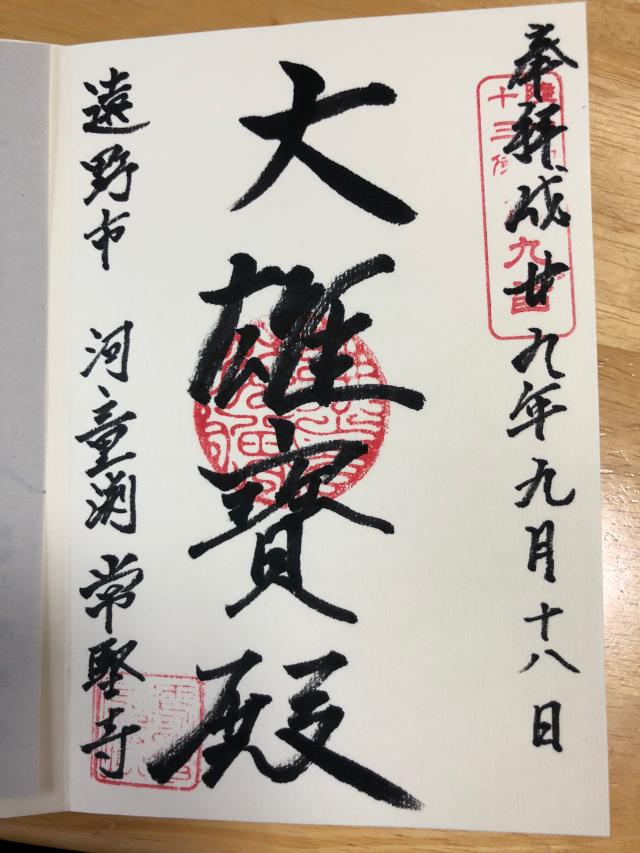 奉拝 成廿九年九月十八日
大雄寳殿
遠野市 河童渕 常堅寺
十三
九